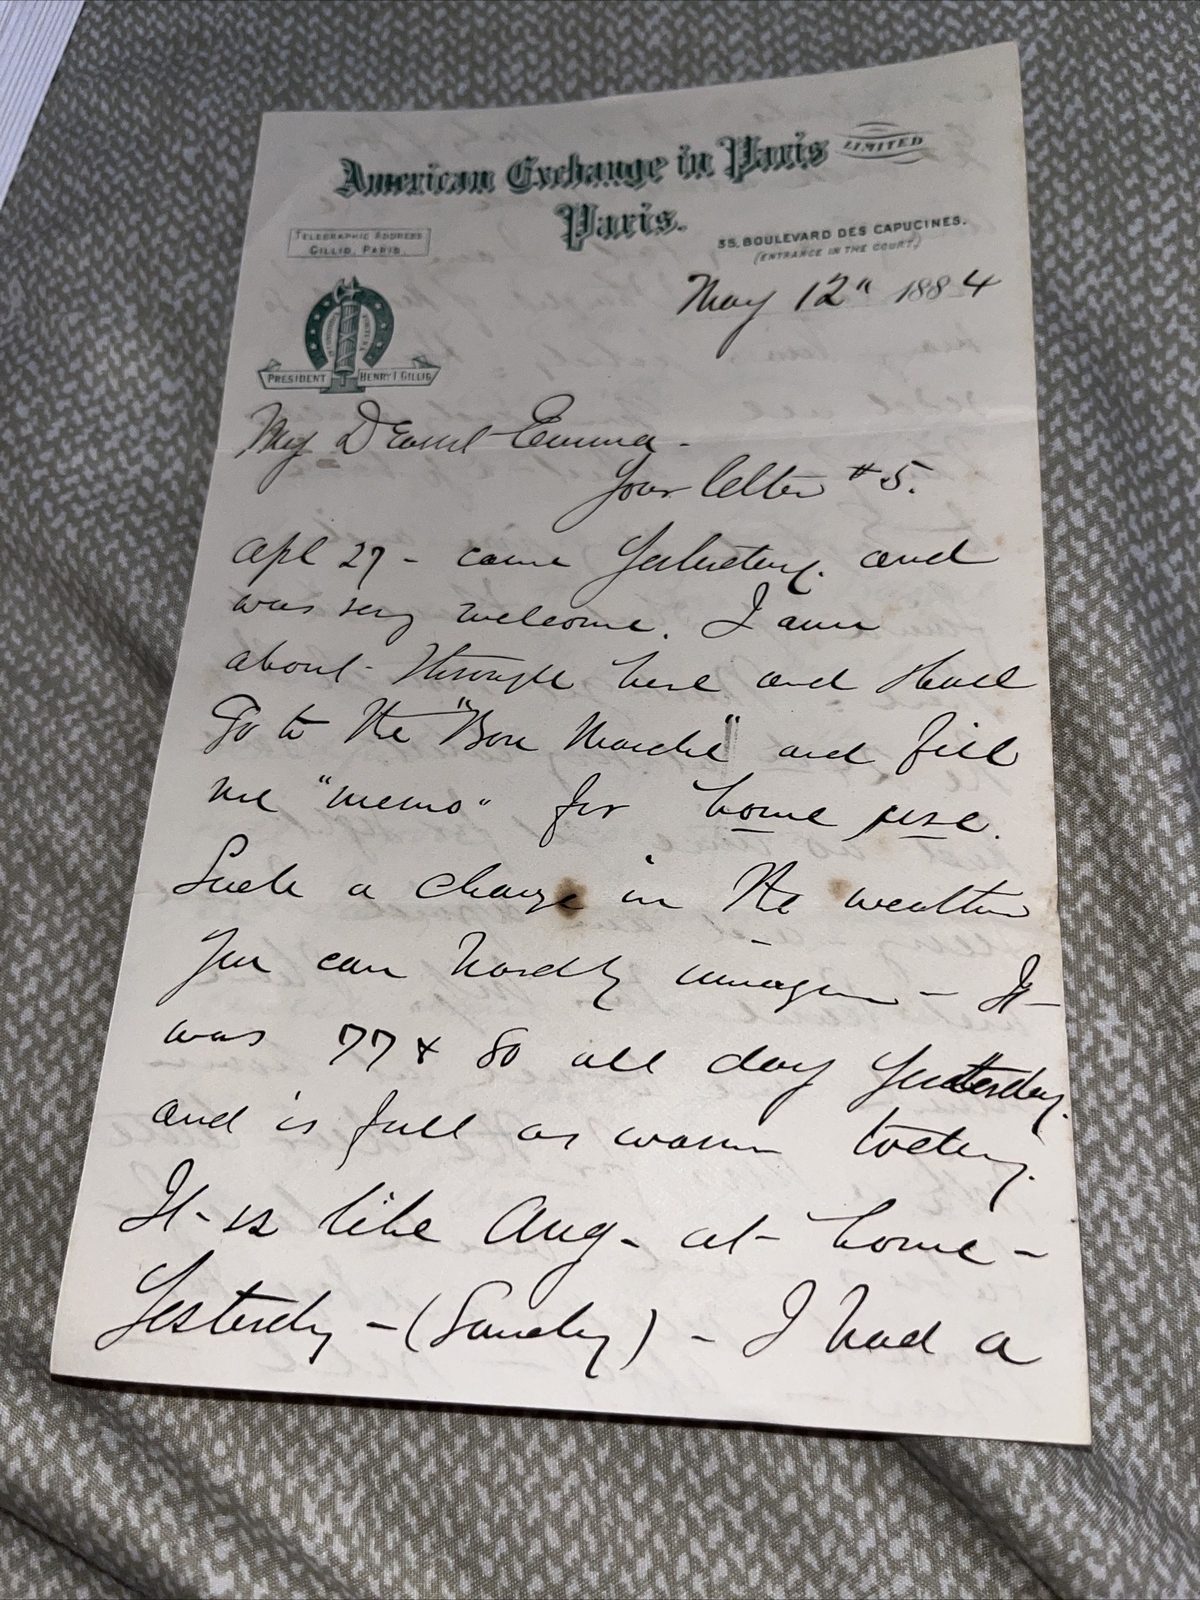 American Exchange in Paris LIMITED
Paris.
TELEGRAPHIC ADDRESS
GILLIG, PARIS.
35, BOULEVARD DES CAPUCINES.
(ENTRANCE IN THE COURT.)
May 12" 1884
PRESIDENT HENRY F. GILLIG
My Dearest Emma -
Your letter #5.
Apl 27 - came Yesterday. and
was very welcome. I am
about through here and shall
Go to the "Bon Marche" and fill
me "memo" for home use.
Such a change in the weather
You can hardly imagine - It
was 77 & 80 all day Yesterday.
and is full as warm today.
It is like Aug - at home -
Yesterday - (Sunday) - I had a